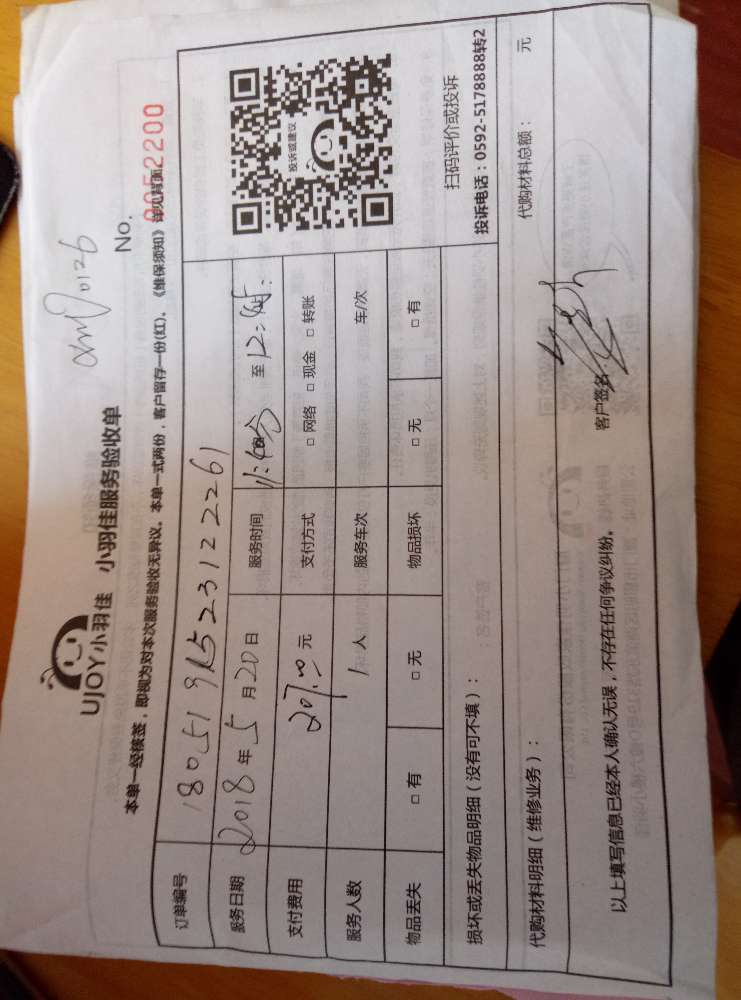 xmy0126
UJOY小羽佳 小羽佳服务验收单
No. 0052200
本单一经核签，即视为对本次服务验收无异议。本单一式两份，客户留存一份(红)。《维保须知》详见背面
订单编号 180519152312 2261
服务日期 2018年5月20日 服务时间 11:40分 至 12:
支付费用 207.00元 支付方式 □网络 □现金 □转账
服务人数 1人 服务车次 车/次
物品丢失 □有 □无 物品损坏 □无 □有
投诉或建议
扫码评价或投诉
投诉电话：0592-5178888转2
损坏或丢失物品明细（没有可不填）：
代购材料明细（维修业务）： 代购材料总额： 元
以上填写信息已经本人确认无误，不存在任何争议纠纷。 客户签名